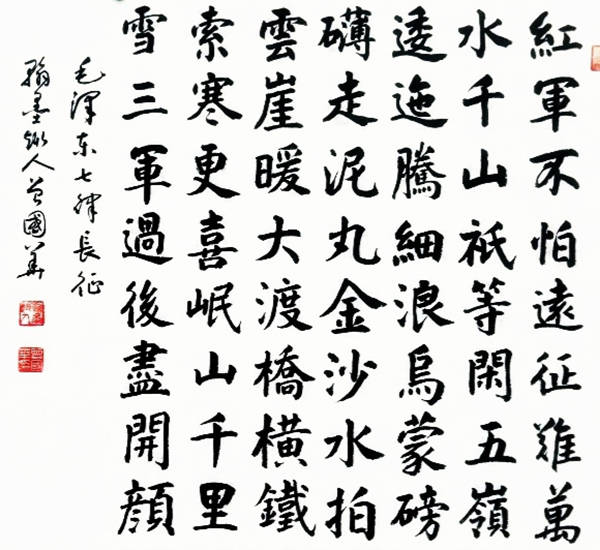 紅軍不怕遠征難萬
水千山祇等閑五嶺
逶迤騰細浪烏蒙磅
礴走泥丸金沙水拍
雲崖暖大渡橋橫鐵
索寒更喜岷山千里
雪三軍過後盡開顏
毛澤东七律長征
翰墨人曾國華